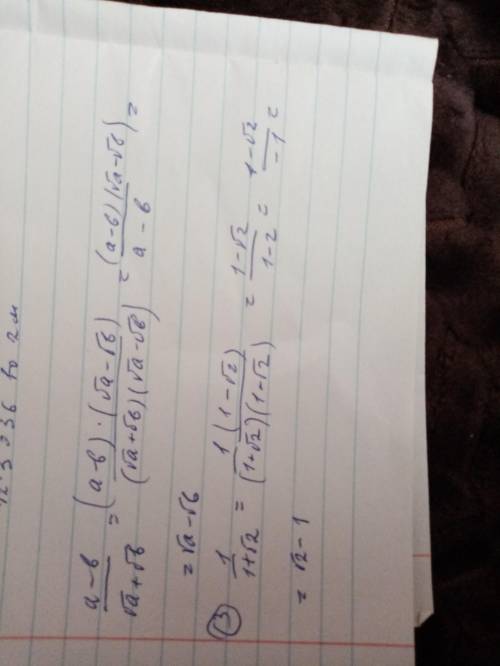 12·3=36
(a-b)/(√a+√b) = ((a-b)·(√a-√b))/((√a+√b)(√a-√b)) = ((a-b)(√a-√b))/(a-b) =
= √a-√b
③ 1/(1+√2) = (1(1-√2))/((1+√2)(1-√2)) = (1-√2)/(1-2) = (1-√2)/(-1) =
= √2-1